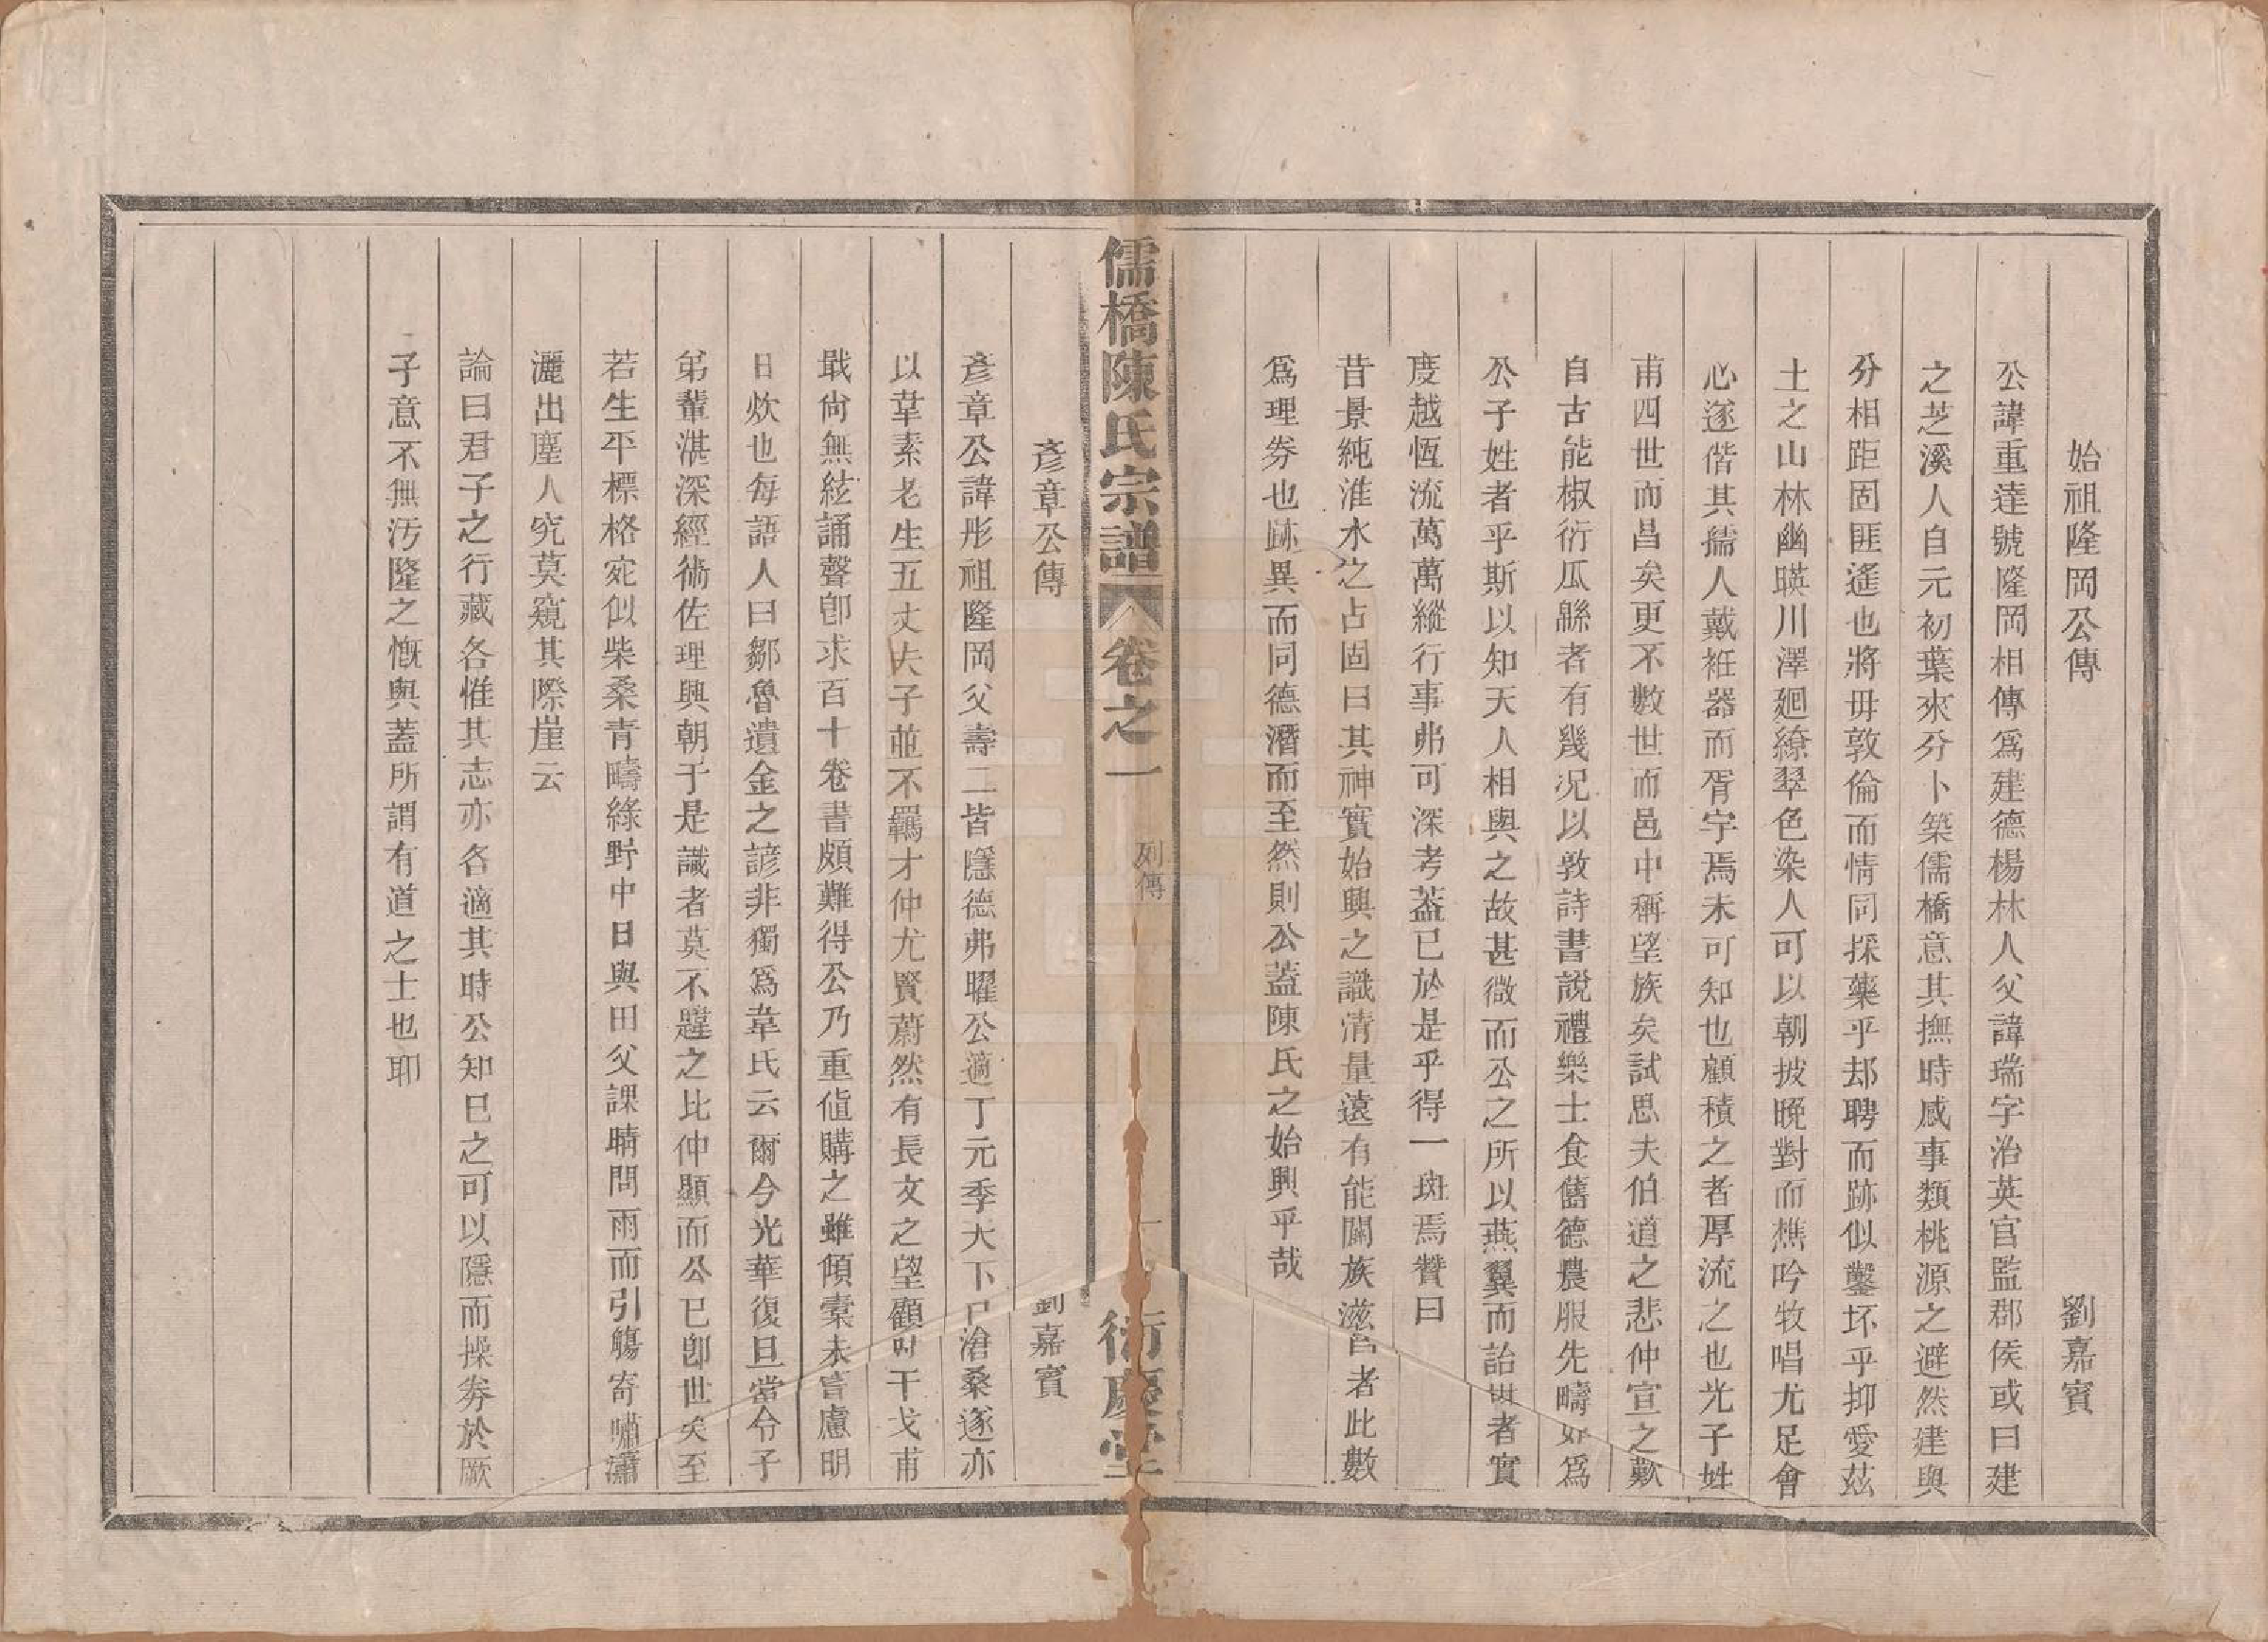 始祖隆岡公傳　劉嘉賓
公諱重達號隆岡相傳爲建德楊林人父諱瑞字治英官監郡侯或曰建
之芝溪人自元初葉來分卜築儒橋意其撫時感事類桃源之避然建與
分相距固匪遙也將毋敦倫而情同採藥乎却聘而跡似鑿坏乎抑愛茲
土之山林幽暎川澤廻繚翠色染人可以朝披晚對而樵吟牧唱尤足會
心遂偕其孺人戴袵器而胥宇焉未可知也顧積之者厚流之也光子姓
甫四世而昌矣更不數世而邑中稱望族矣試思夫伯道之悲仲宣之歎
自古能椒衍瓜緜者有幾况以敦詩書說禮樂士食舊德農服先疇如爲
公子姓者乎斯以知天人相與之故甚微而公之所以燕翼而詒世者實
度越恆流萬萬縱行事弗可深考葢已於是乎得一斑焉贊曰
昔景純淮水之占固曰其神實始興之識清量遠有能闡族滋昌者此數
爲理券也跡異而同德潛而至然則公蓋陳氏之始興乎哉
儒橋陳氏宗譜　卷之一　列傳　一　衍慶堂
彥章公傳　劉嘉賓
彥章公諱彤祖隆岡父壽二皆隱德弗曜公適丁元季天下已滄桑遂亦
以韋素老生五丈夫子並不羈才仲尤賢蔚然有長文之望顧時干戈甫
戢尙無絃誦聲卽求百十卷書頗難得公乃重値購之雖傾橐未嘗慮明
日炊也每語人曰鄒魯遺金之諺非獨爲韋氏云爾今光華復旦當令子
弟輩湛深經術佐理興朝于是識者莫不韙之比仲顯而公已卽世矣至
若生平標格宛似柴桑青疇綠野中日與田父課晴問雨而引觴寄嘯瀟
灑出塵人究莫窺其際崖云
論曰君子之行藏各惟其志亦各適其時公知已之可以隱而操券於厥
子意不無汚隆之慨與蓋所謂有道之士也耶